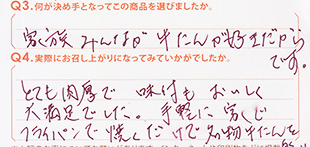 Q3.何が決め手となってこの商品を選びましたか。
家族 みんなが 牛たんが好きだから
です。
Q4.実際にお召し上がりになってみていかがでしたか。
とても肉厚で 味付も おいしく
大満足でした。手軽に 家で
フライパンで 焼くだけで 名物牛たんを